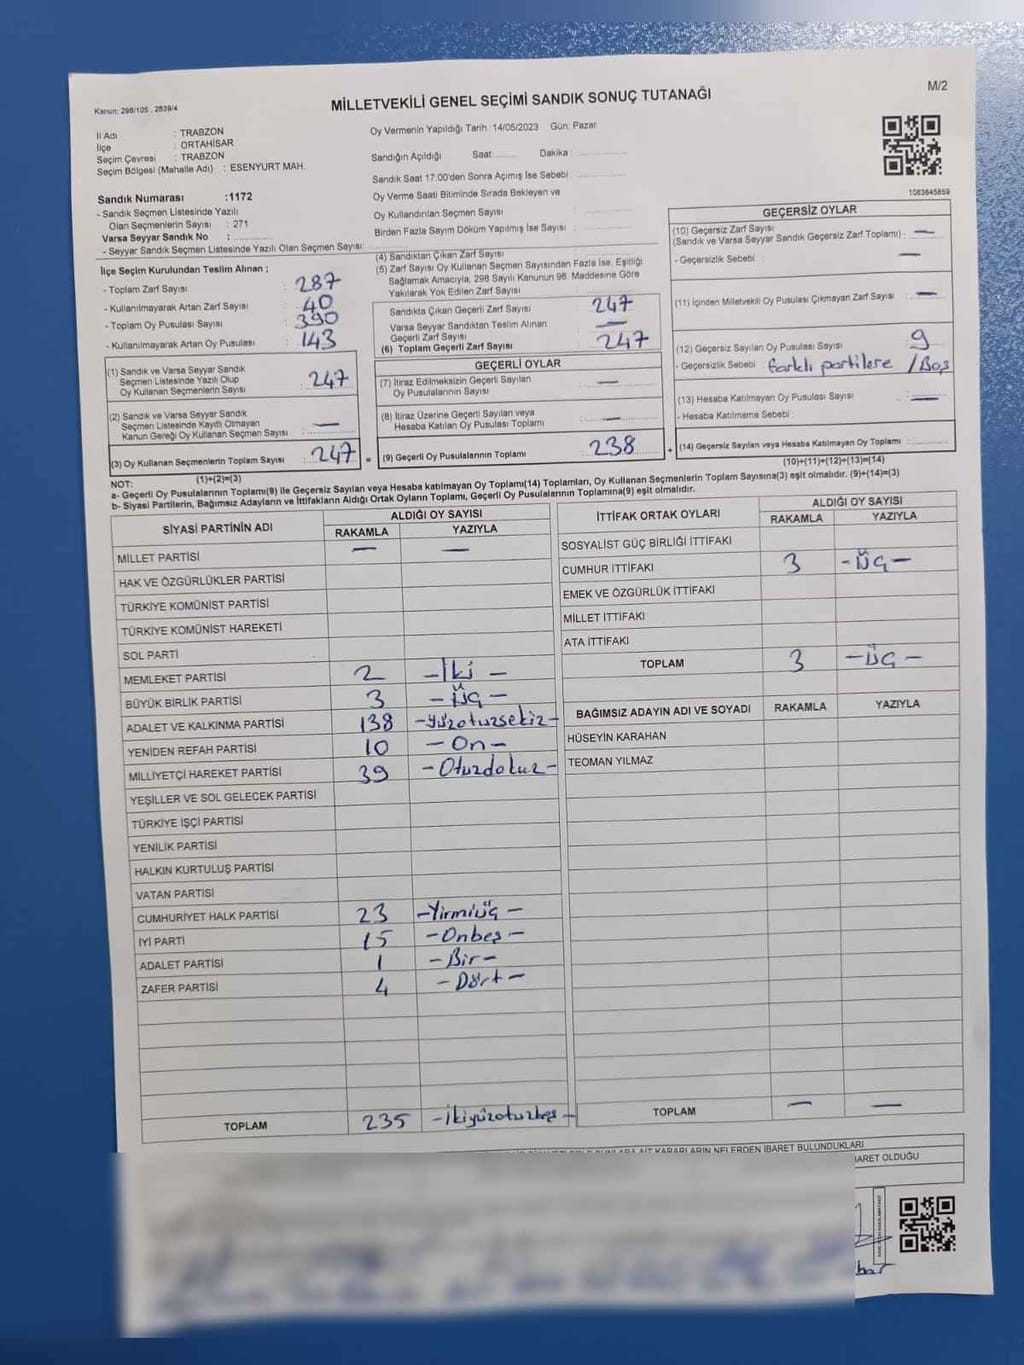 Kanun: 298/105 , 2839/4
MİLLETVEKİLİ GENEL SEÇİMİ SANDIK SONUÇ TUTANAĞI
M/2
İl Adı : TRABZON
İlçe : ORTAHİSAR
Seçim Çevresi : TRABZON
Seçim Bölgesi (Mahalle Adı) : ESENYURT MAH.
Oy Vermenin Yapıldığı Tarih :14/05/2023 Gün: Pazar
Sandığın Açıldığı Saat: Dakika :
Sandık Saat 17:00'den Sonra Açımış İse Sebebi :
Oy Verme Saati Bitiminde Sırada Bekleyen ve
Oy Kullandırılan Seçmen Sayısı :
Birden Fazla Sayım Döküm Yapılmış İse Sayısı :
1083645859
Sandık Numarası :1172
- Sandık Seçmen Listesinde Yazılı
Olan Seçmenlerin Sayısı : 271
Varsa Seyyar Sandık No :
- Seyyar Sandık Seçmen Listesinde Yazılı Olan Seçmen Sayısı:
İlçe Seçim Kurulundan Teslim Alınan ;
- Toplam Zarf Sayısı : 287
- Kullanılmayarak Artan Zarf Sayısı : 40
- Toplam Oy Pusulası Sayısı : 390
- Kullanılmayarak Artan Oy Pusulası : 143
(1) Sandık ve Varsa Seyyar Sandık
Seçmen Listesinde Yazılı Olup
Oy Kullanan Seçmenlerin Sayısı : 247
(2) Sandık ve Varsa Seyyar Sandık
Seçmen Listesinde Kayıtlı Olmayan
Kanun Gereği Oy Kullanan Seçmen Sayısı : —
(3) Oy Kullanan Seçmenlerin Toplam Sayısı : 247 =
(1)+(2)=(3)
(4) Sandıktan Çıkan Zarf Sayısı :
(5) Zarf Sayısı Oy Kullanan Seçmen Sayısından Fazla İse, Eşitliği
Sağlamak Amacıyla, 298 Sayılı Kanunun 98. Maddesine Göre
Yakılarak Yok Edilen Zarf Sayısı :
Sandıkta Çıkan Geçerli Zarf Sayısı : 247
Varsa Seyyar Sandıktan Teslim Alınan
Geçerli Zarf Sayısı : —
(6) Toplam Geçerli Zarf Sayısı : 247
GEÇERLİ OYLAR
(7) İtiraz Edilmeksizin Geçerli Sayılan
Oy Pusulalarının Sayısı : —
(8) İtiraz Üzerine Geçerli Sayılan veya
Hesaba Katılan Oy Pusulası Toplamı : —
(9) Geçerli Oy Pusulalarının Toplamı : 238 +
GEÇERSİZ OYLAR
(10) Geçersiz Zarf Sayısı
(Sandık ve Varsa Seyyar Sandık Geçersiz Zarf Toplamı) : —
- Geçersizlik Sebebi : —
(11) İçinden Milletvekili Oy Pusulası Çıkmayan Zarf Sayısı : —
(12) Geçersiz Sayılan Oy Pusulası Sayısı : 9
- Geçersizlik Sebebi : farklı partilere / Boş
(13) Hesaba Katılmayan Oy Pusulası Sayısı : —
- Hesaba Katılmama Sebebi :
(14) Geçersiz Sayılan veya Hesaba Katılmayan Oy Toplamı :
(10)+(11)+(12)+(13)=(14)
NOT:
a- Geçerli Oy Pusulalarının Toplamı(9) ile Geçersiz Sayılan veya Hesaba katılmayan Oy Toplamı(14) Toplamları, Oy Kullanan Seçmenlerin Toplam Sayısına(3) eşit olmalıdır. (9)+(14)=(3)
b- Siyasi Partilerin, Bağımsız Adayların ve İttifakların Aldığı Ortak Oyların Toplamı, Geçerli Oy Pusulalarının Toplamına(9) eşit olmalıdır.
SİYASİ PARTİNİN ADI ALDIĞI OY SAYISI
RAKAMLA YAZIYLA
MİLLET PARTİSİ — —
HAK VE ÖZGÜRLÜKLER PARTİSİ
TÜRKİYE KOMÜNİST PARTİSİ
TÜRKİYE KOMÜNİST HAREKETİ
SOL PARTİ
MEMLEKET PARTİSİ 2 -İki -
BÜYÜK BİRLİK PARTİSİ 3 - Üç -
ADALET VE KALKINMA PARTİSİ 138 -Yüzotuzsekiz-
YENİDEN REFAH PARTİSİ 10 - On -
MİLLİYETÇİ HAREKET PARTİSİ 39 - Otuzdokuz -
YEŞİLLER VE SOL GELECEK PARTİSİ
TÜRKİYE İŞÇİ PARTİSİ
YENİLİK PARTİSİ
HALKIN KURTULUŞ PARTİSİ
VATAN PARTİSİ
CUMHURİYET HALK PARTİSİ 23 -Yirmiüç -
İYİ PARTİ 15 -Onbeş -
ADALET PARTİSİ 1 - Bir -
ZAFER PARTİSİ 4 - Dört -
TOPLAM 235 -İkiyüzotuzbeş -
İTTİFAK ORTAK OYLARI ALDIĞI OY SAYISI
RAKAMLA YAZIYLA
SOSYALİST GÜÇ BİRLİĞİ İTTİFAKI
CUMHUR İTTİFAKI 3 - Üç -
EMEK VE ÖZGÜRLÜK İTTİFAKI
MİLLET İTTİFAKI
ATA İTTİFAKI
TOPLAM 3 - Üç -
BAĞIMSIZ ADAYIN ADI VE SOYADI RAKAMLA YAZIYLA
HÜSEYİN KARAHAN
TEOMAN YILMAZ
TOPLAM — —
KARARLARIN NELERDEN İBARET BULUNDUKLARI
İBARET OLDUĞU